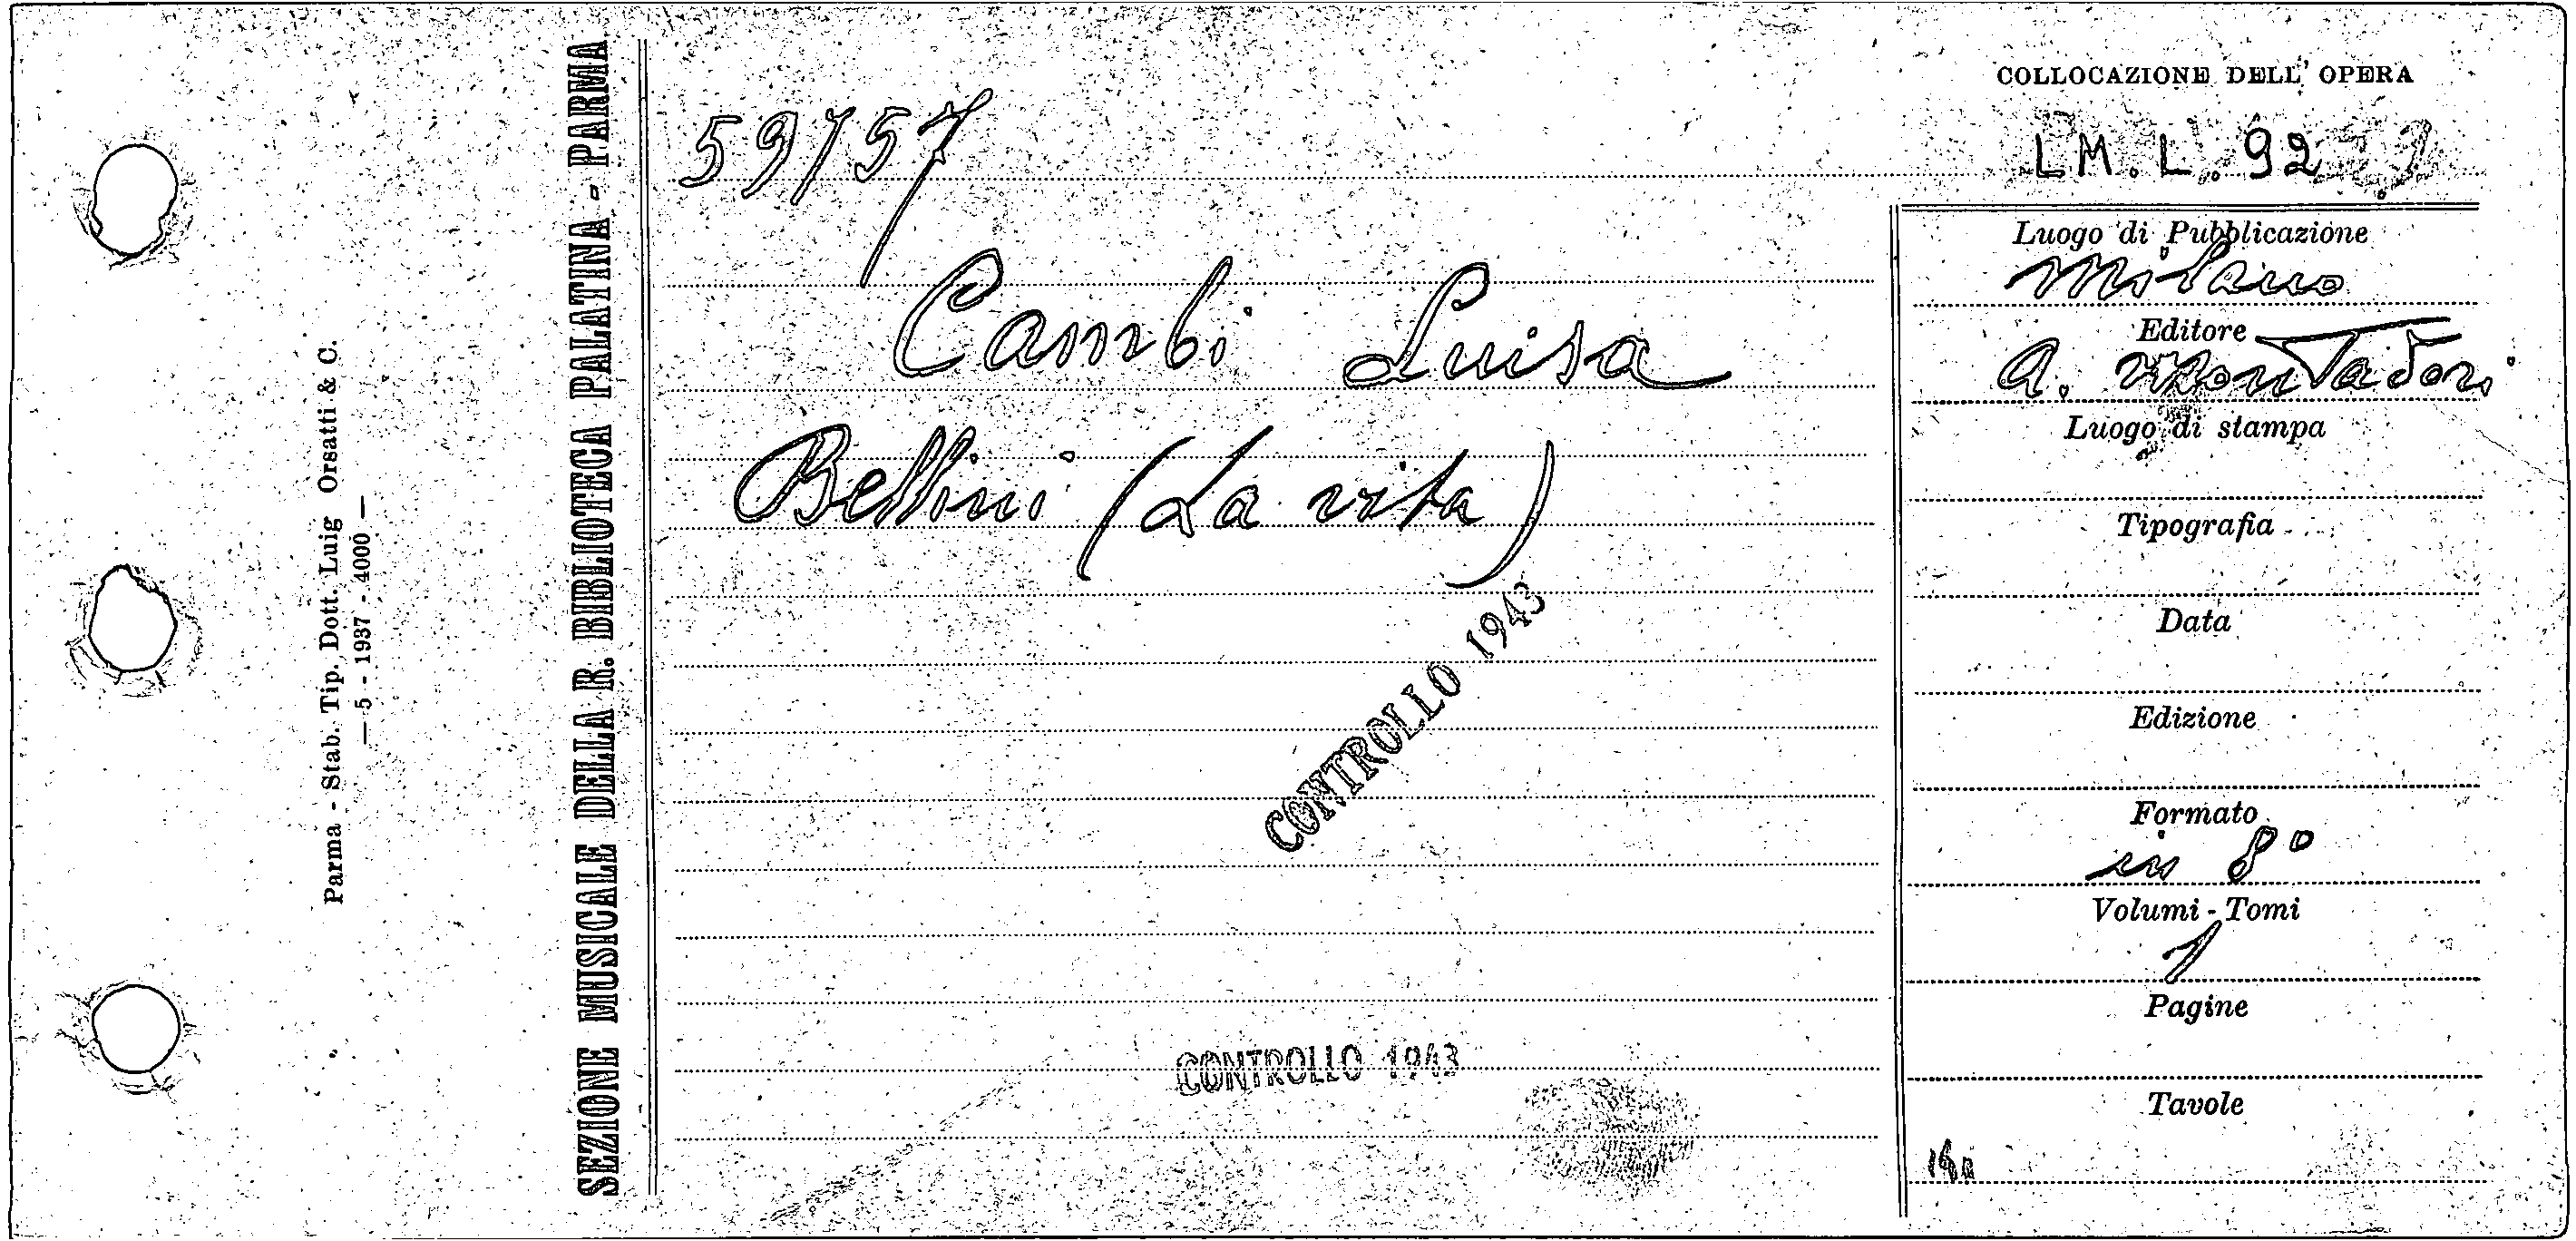 Parma - Stab. Tip. Dott. Luig Orsatti & C.
— 5 - 1937 - 4000 —
SEZIONE MUSICALE DELLA R. BIBLIOTECA PALATINA - PARMA
59157
Cambi Luisa
Bellini (La vita)
CONTROLLO 1943
CONTROLLO 1943
COLLOCAZIONE DELL' OPERA
LM. L. 92
Luogo di Pubblicazione
Milano
Editore
A. Montadori
Luogo di stampa
Tipografia
Data
Edizione
Formato
in 8º
Volumi - Tomi
1
Pagine
Tavole